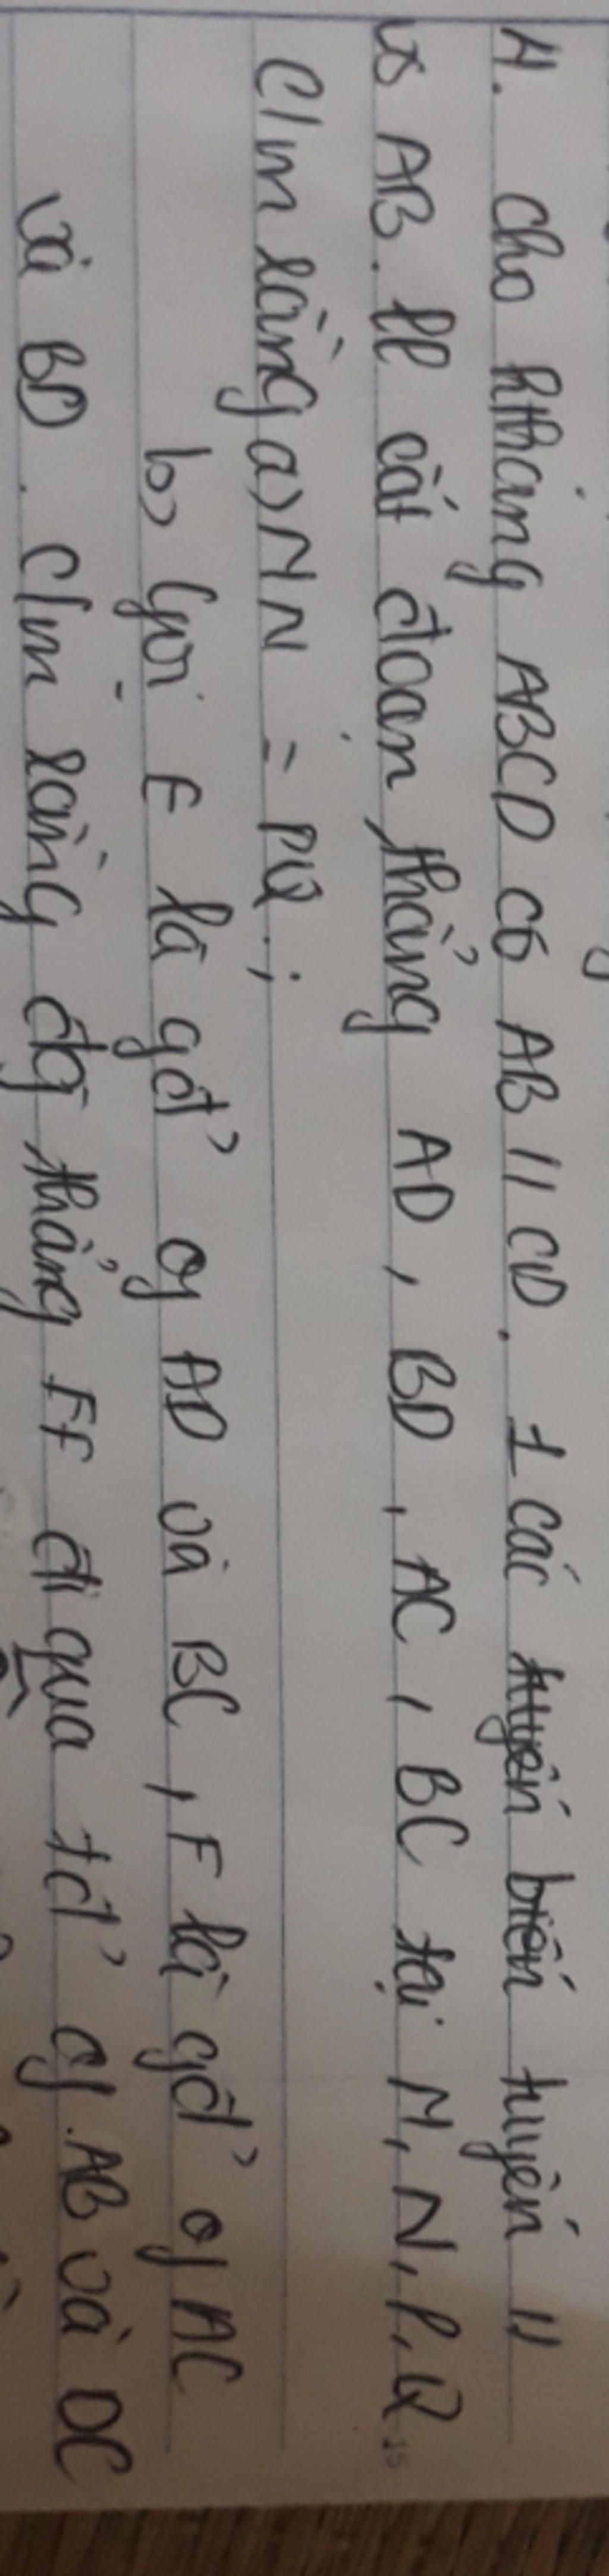 4. Cho hthang ABCD có AB // CD. 1 cát tuyến tuyến //
vs AB. ll cắt đoạn thẳng AD, BD, AC, BC tại M, N, P, Q
C/m rằng a) MN = PQ;
b) Gọi E là gđ' of AD và BC, F là gđ' of AC
và BD. C/m rằng đg thẳng EF đi qua tđ' of AB và DC